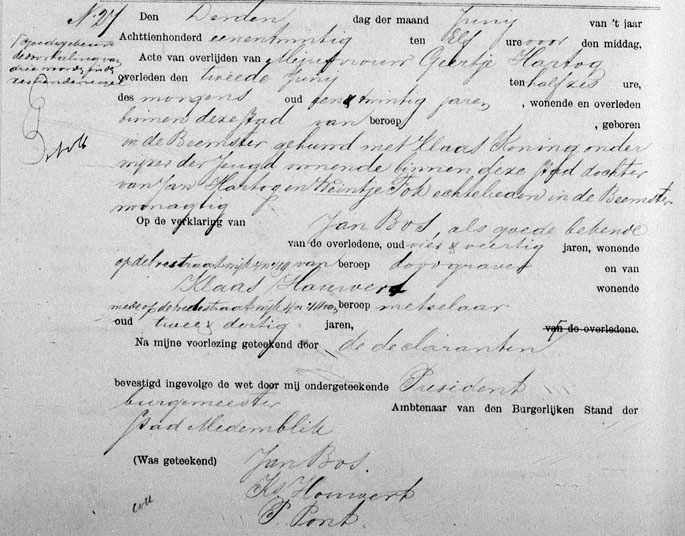 N. 27
Den Derden dag der maand Junij van 't jaar
Achttienhonderd eenentwintig ten Elf ure voor den middag,
Acte van overlijden van Mejufvrouw Geertje Hartog
overleden den tweede Junij ten half zes ure,
des morgens oud een & twintig jaren, wonende en overleden
binnen deze stad van beroep , geboren
in de Beemster gehuwd met Klaas Koning onder
wijzer der Jeugd wonende binnen deze stad dochter
van Jan Hartog en Trintje Tox echtelieden in de Beemster
woonagtig
Op de verklaring van Jan Bos, als goede bekende
van de overledene, oud vier & veertig jaren, wonende
op de van beroep doodgraver en van
Klaas Houwert wonende
mede op de beroep metselaar
oud twee & dertig jaren, van de overledene.
Na mijne voorlezing geteekend door de declaranten
bevestigd ingevolge de wet door mij ondergeteekende President
burgemeester Ambtenaar van den Burgerlijken Stand der
stad Medemblik
(Was geteekend) Jan Bos.
Ks. Houwert
P. Pont.